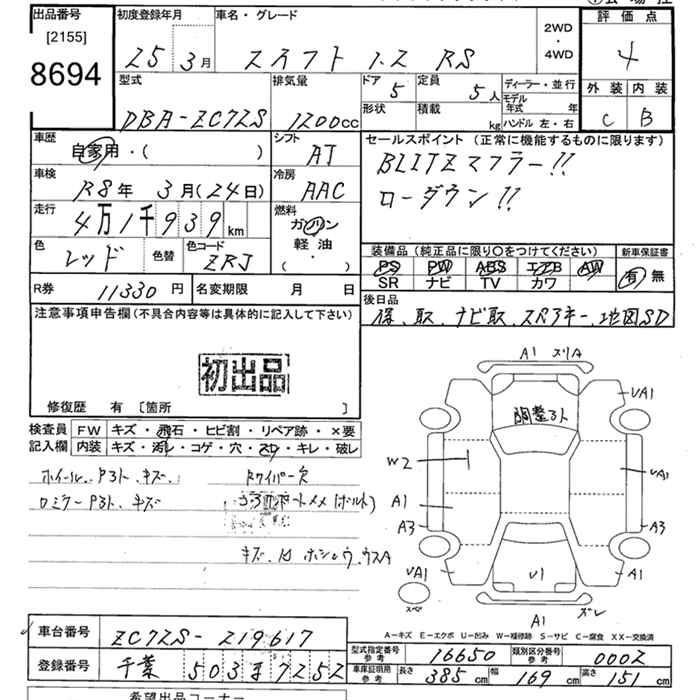 出品番号 初度登録年月 車名・グレード 評価点
[2155] 2WD
8694 25年 3月 スイフト 1.2 RS ・4WD 4
型式 排気量 ドア 定員 ディーラー・並行 外装 内装
DBA-ZC72S 1200cc 5 5人 モデル年式 年 C B
形状 積載 kg ハンドル 左・右
車歴 シフト セールスポイント (正常に機能するものに限ります)
自家用・( ) AT BLITZマフラー!!
車検 冷房 ローダウン!!
R8年 3月(24日) AAC
走行 燃料
4万1千939km ガソリン
色 色替 色コード 軽油 装備品 (純正品に限り○をつけてください) 新車保証書
レッド ZRJ ・( ) PS PW ABS エアB AW 有・無
R券 11330円 名変期限 月 日 SR ナビ TV カワ
後日品
注意事項申告欄(不具合内容等は具体的に記入して下さい) 保、取、ナビ取、スペアキー、地図SD
初出品
修復歴 有 〔箇所 〕
検査員 FW キズ・飛石・ヒビ割・リペア跡・×要
記入欄 内装 キズ・汚レ・コゲ・穴・スレ・キレ・破レ
ホイール キズ
キズ
A1 スリA
UA1
W2
UA1
A1
A3 A3
UA1 U1 A1
スペア
A1 ズレ
A-キズ E-エクボ U-凹み W-補修跡 S-サビ C-腐食 XX-交換済
車台番号 ZC72S-219617
型式指定番号 参考 16650 類別区分番号 参考 0002
登録番号 千葉 503 7252
車庫証明用 参考 長さ 385cm 幅 169cm 高さ 151cm
希望出品コーナー